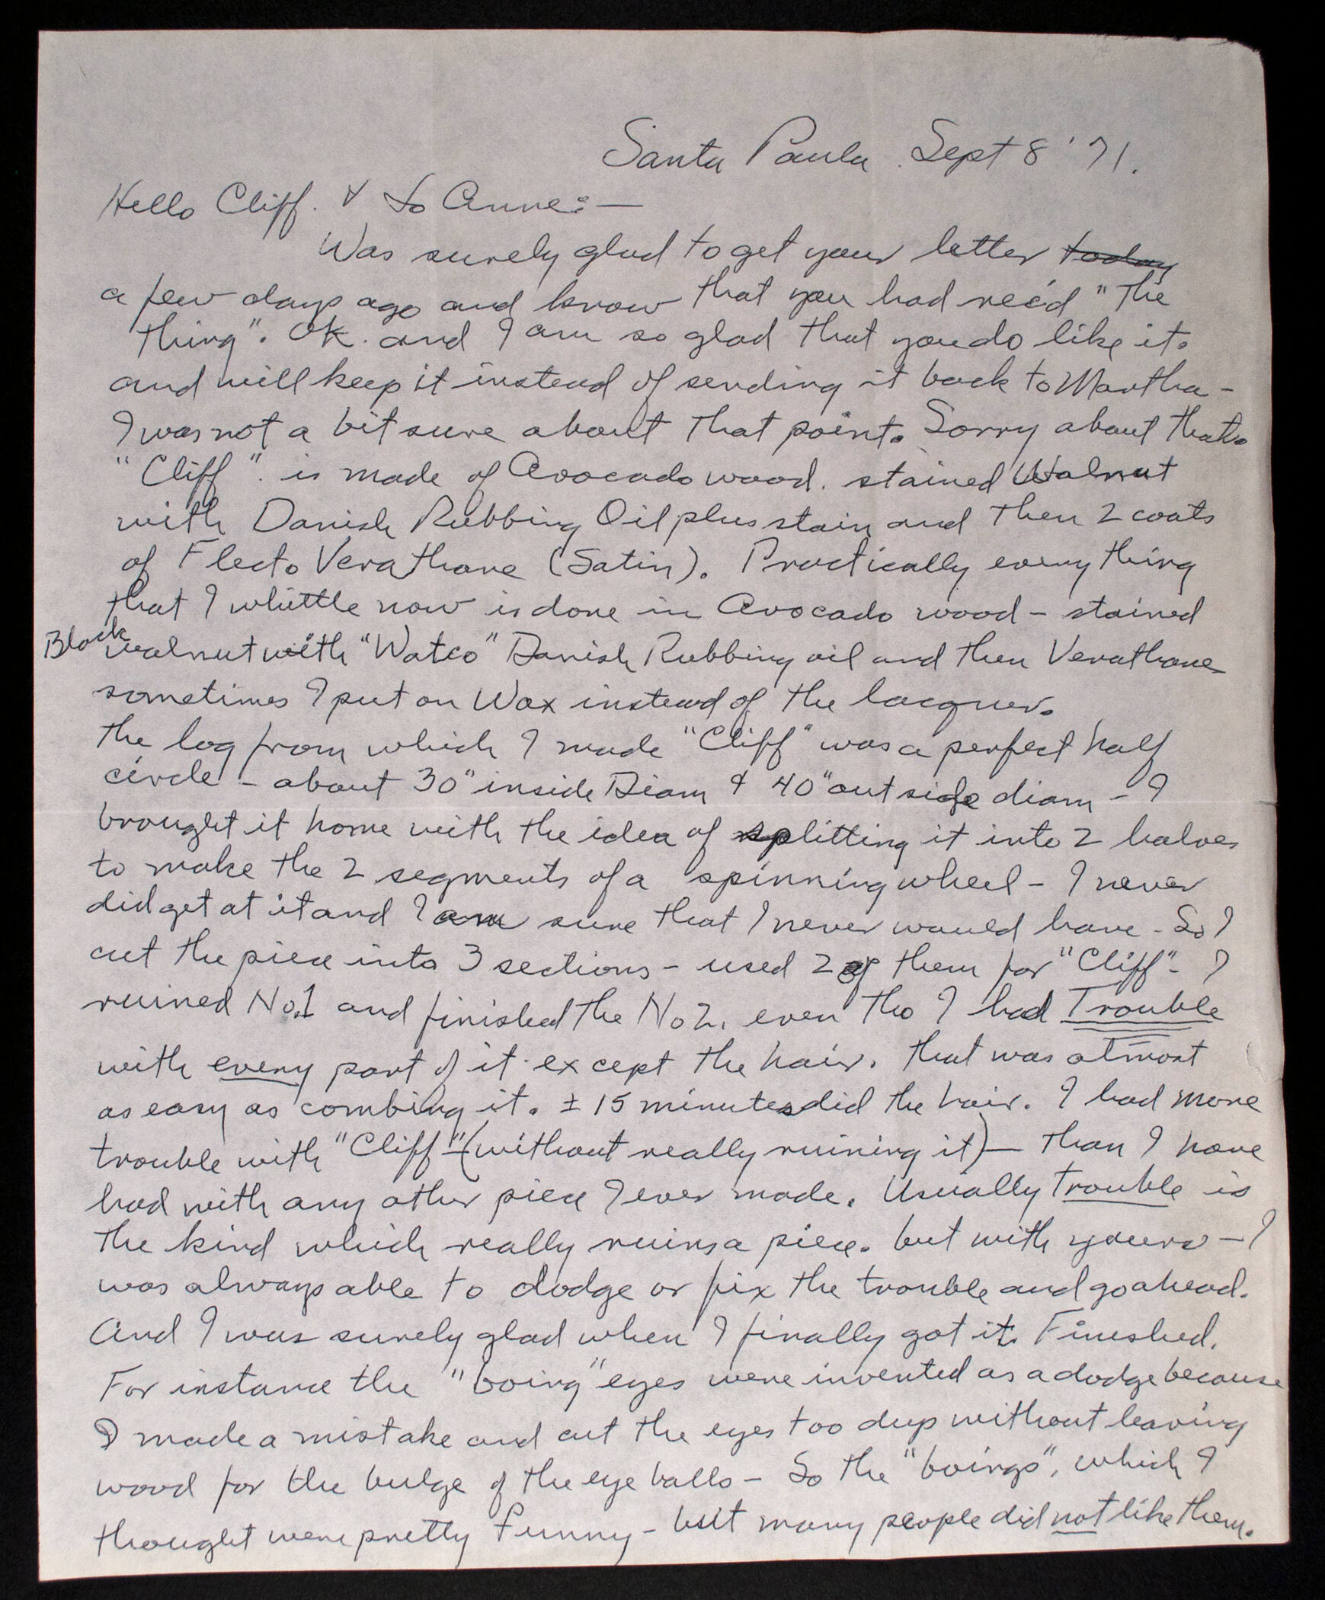 Santa Paula. Sept 8 '71.
Hello Cliff. & Jo Anne: —
Was surely glad to get your letter today
a few days ago and know that you had rec'd "The
thing". Ok. and I am so glad that you do like it.
and will keep it instead of sending it back to Martha -
I was not a bit sure about that point. Sorry about that.
"Cliff". is made of Avocado wood. stained Walnut
with Danish Rubbing Oil plus stain and then 2 coats
of Flecto Verathane (Satin). Practically everything
that I whittle now is done in Avocado wood - stained
Black walnut with "Watco" Danish Rubbing oil and then Verathane
sometimes I put on Wax instead of the lacquer.
The log from which I made "Cliff" was a perfect half
circle - about 30" inside Diam & 40" outside diam - I
brought it home with the idea of splitting it into 2 halves
to make the 2 segments of a spinning wheel - I never
did get at it and I am sure that I never would have - So I
cut the piece into 3 sections - used 2 of them for "Cliff" - I
ruined No.1 and finished the No 2. even tho I had Trouble
with every part of it except the hair. That was almost
as easy as combing it. ± 15 minutes did the hair. I had more
trouble with "Cliff" - (without really ruining it) — than I have
had with any other piece I ever made. Usually trouble is
the kind which really ruins a piece. but with yours - I
was always able to dodge or fix the trouble and go ahead.
And I was surely glad when I finally got it Finished.
For instance the "boing" eyes were invented as a dodge because
I made a mistake and cut the eyes too deep without leaving
wood for the bulge of the eye balls - So the "boings", which I
thought were pretty funny - but many people did not like them.